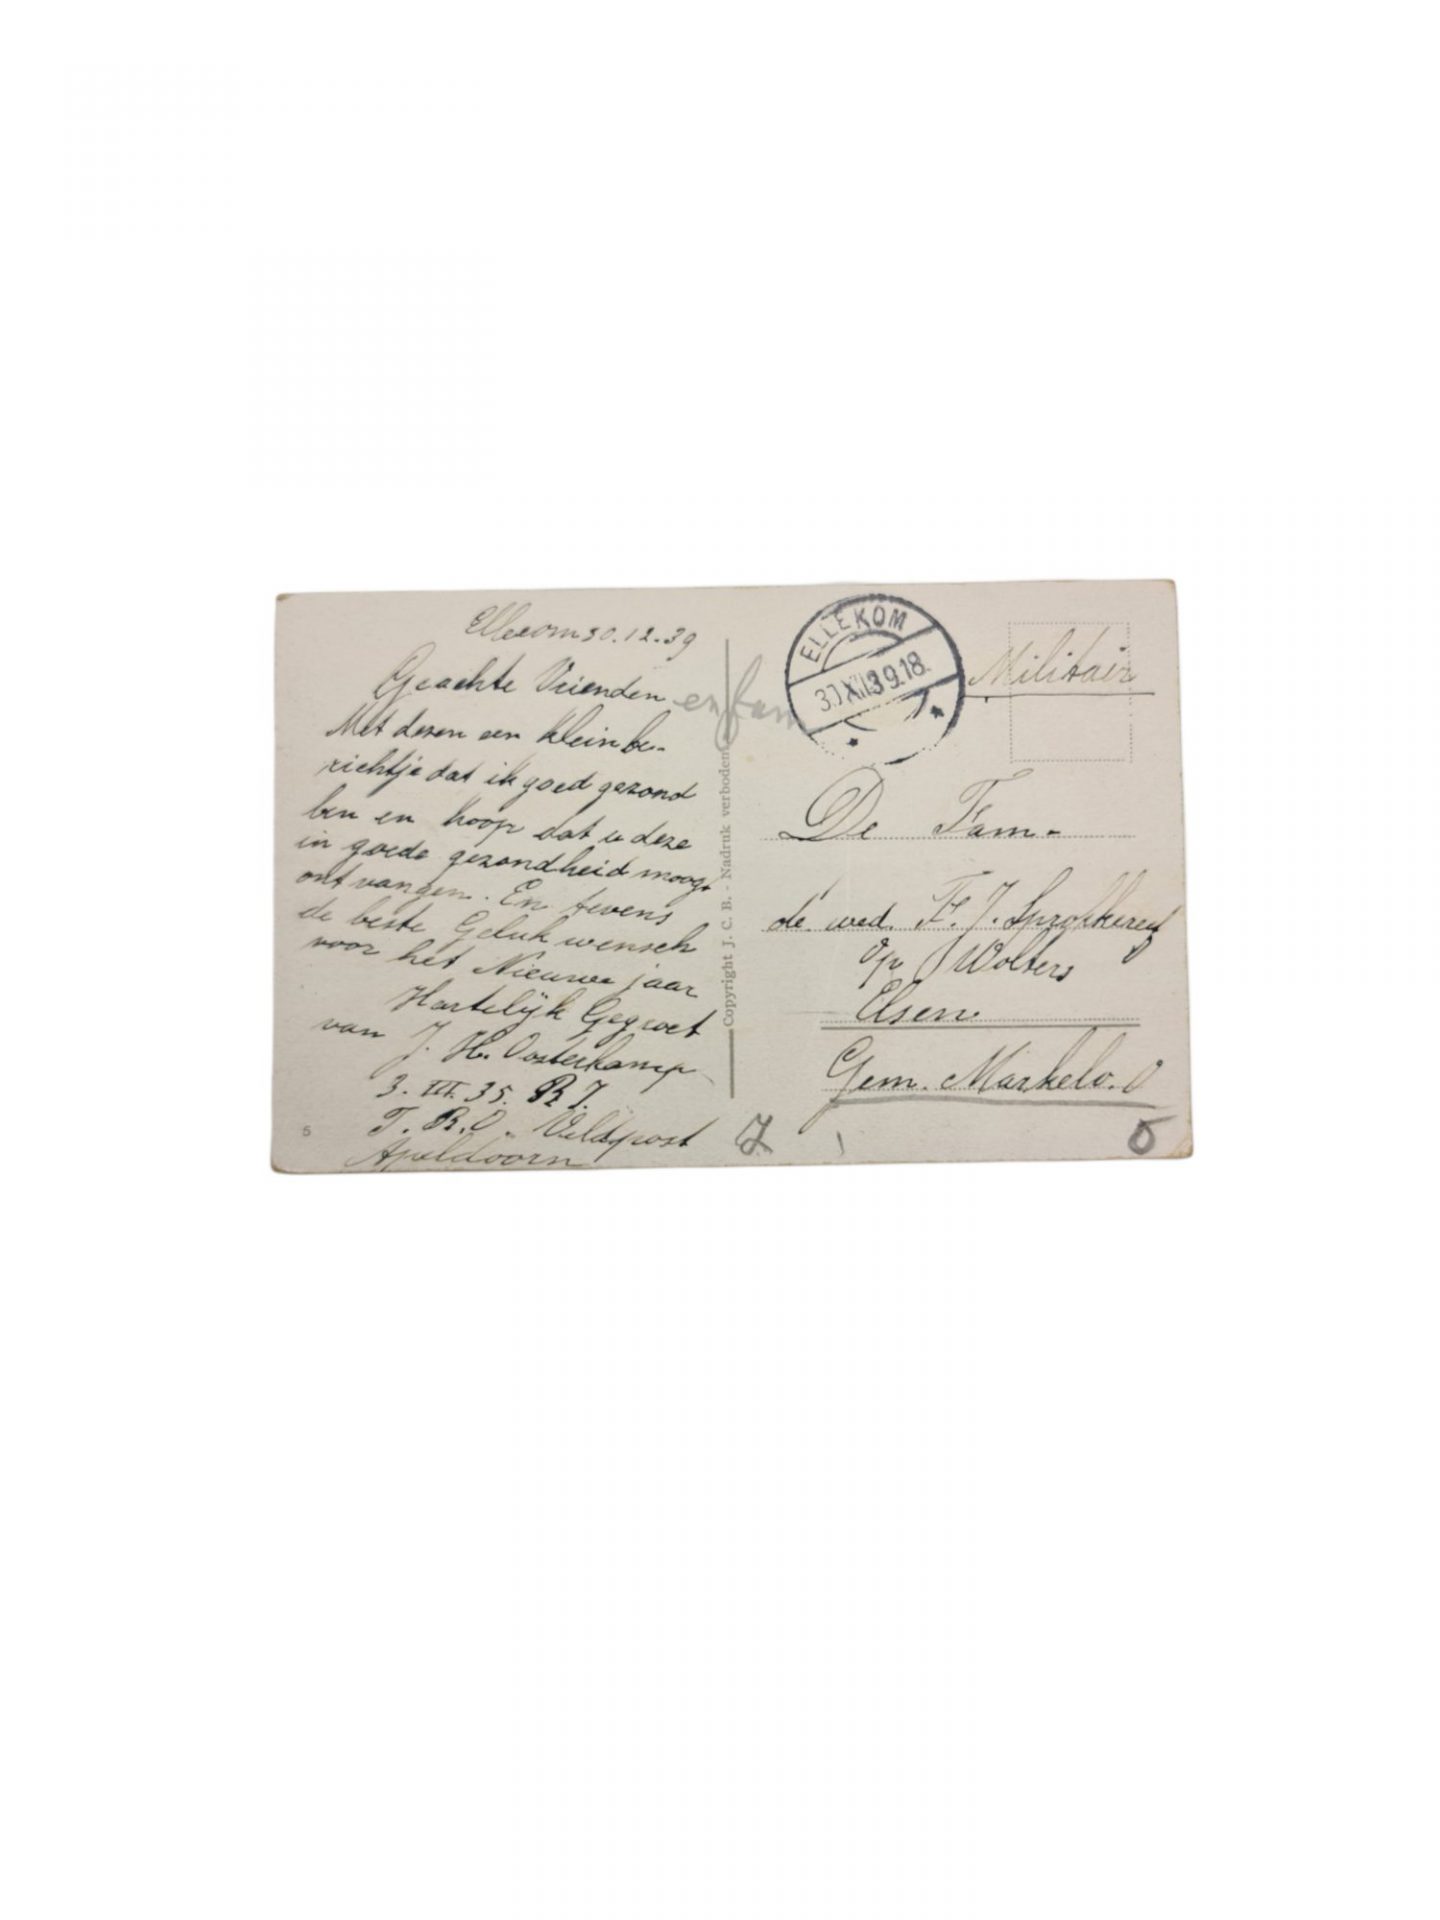 Ellecom 30.12.39
Geachte Vrienden en fam
Met dezen een klein be-
richtje dat ik goed gezond
ben en hoop dat u deze
in goede gezondheid moogt
ontvangen. En tevens
de beste Geluk wensch
voor het Nieuwe jaar
Hartelijk Gegroet
van J. H. Oosterkamp
3. III. 35. R. I.
T. B. O. Veldpost
Apeldoorn
5
Copyright J. C. B. - Nadruk verboden
ELLEKOM
30.XII.39.18.
Militair
De Fam.
de wed. F. J.
op Wolters
Elsen.
Gem. Markelo. O